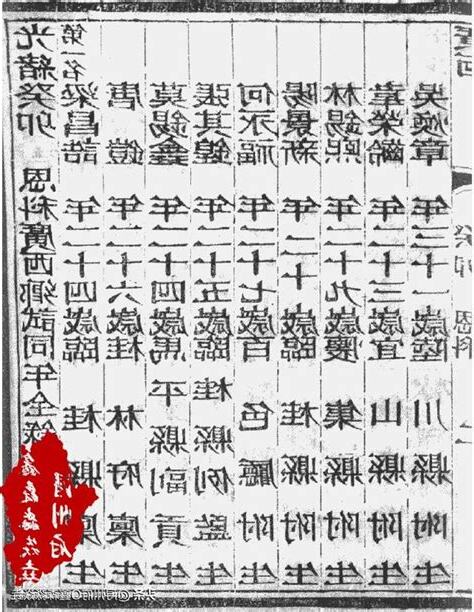 光緒癸卯恩科廣西鄉試同年全錄
第一名
梁昌誥 年二十四歲臨桂縣廩生
唐鎧 年二十六歲桂林府廩生
莫錫鑫 年二十四歲馬平縣副貢生
張其鍠 年二十五歲臨桂縣例監生
何永福 年二十七歲百色廳附生
陽景新 年二十歲臨桂縣附生
林錫熙 年二十九歲懷集縣附生
韋榮齡 年二十三歲宜山縣附生
吳煥章 年三十一歲陸川縣附生
恩科
一
州府